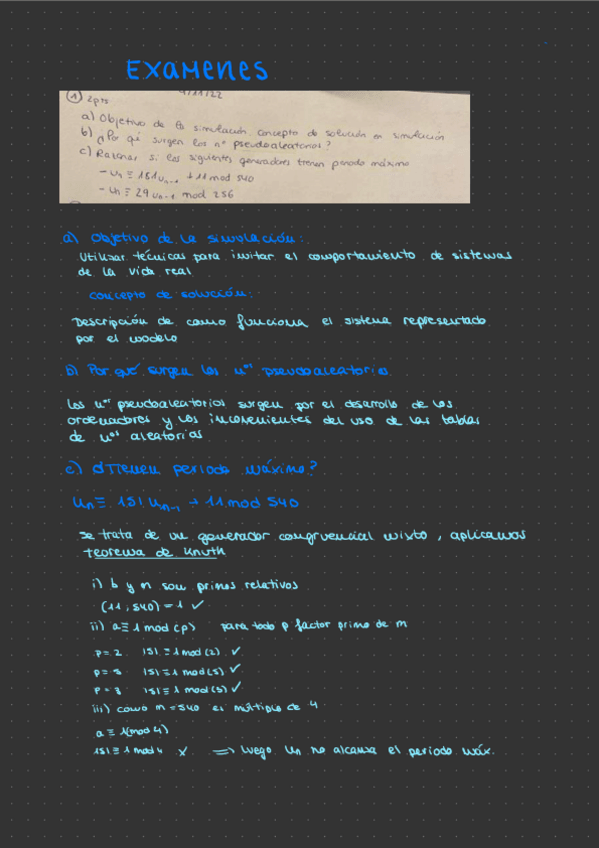 EXAMENES
4/11/22
1) 2pts
a) Objetivo de la simulación, concepto de solución en simulación
b) ¿Por qué surgen los nº pseudoaleatorios?
c) Razonar si los siguientes generadores tienen periodo máximo
- un ≡ 151un-1 + 11 mod 540
- un ≡ 29 un-1 mod 256
a) Objetivo de la simulación:
Utilizar técnicas para imitar el comportamiento de sistemas
de la vida real
Concepto de solución:
Descripción de como funciona el sistema representado
por el modelo
b) Por qué surgen los nos pseudoaleatorios.
Los nos pseudoaleatorios surgen por el desarrollo de los
ordenadores y los inconvenientes del uso de las tablas
de nos aleatorios
c) ¿Tienen periodo máximo?
Un ≡ 151 Un-1 + 11 mod 540
Se trata de un generador congruencial mixto, aplicamos
teorema de Knuth
i) b y m son primos relativos
(11, 540) = 1 ✓
ii) a ≡ 1 mod (p) para todo p factor primo de m
p = 2 151 ≡ 1 mod (2) ✓
151 ≡ 1 mod (5) ✓
p = 3 ✓
iii) como m = 540 es múltiplo de 4
a ≡ 1 (mod 4)
151 ≡ 1 mod 4 x ⇒ luego Un no alcanza el periodo máx.